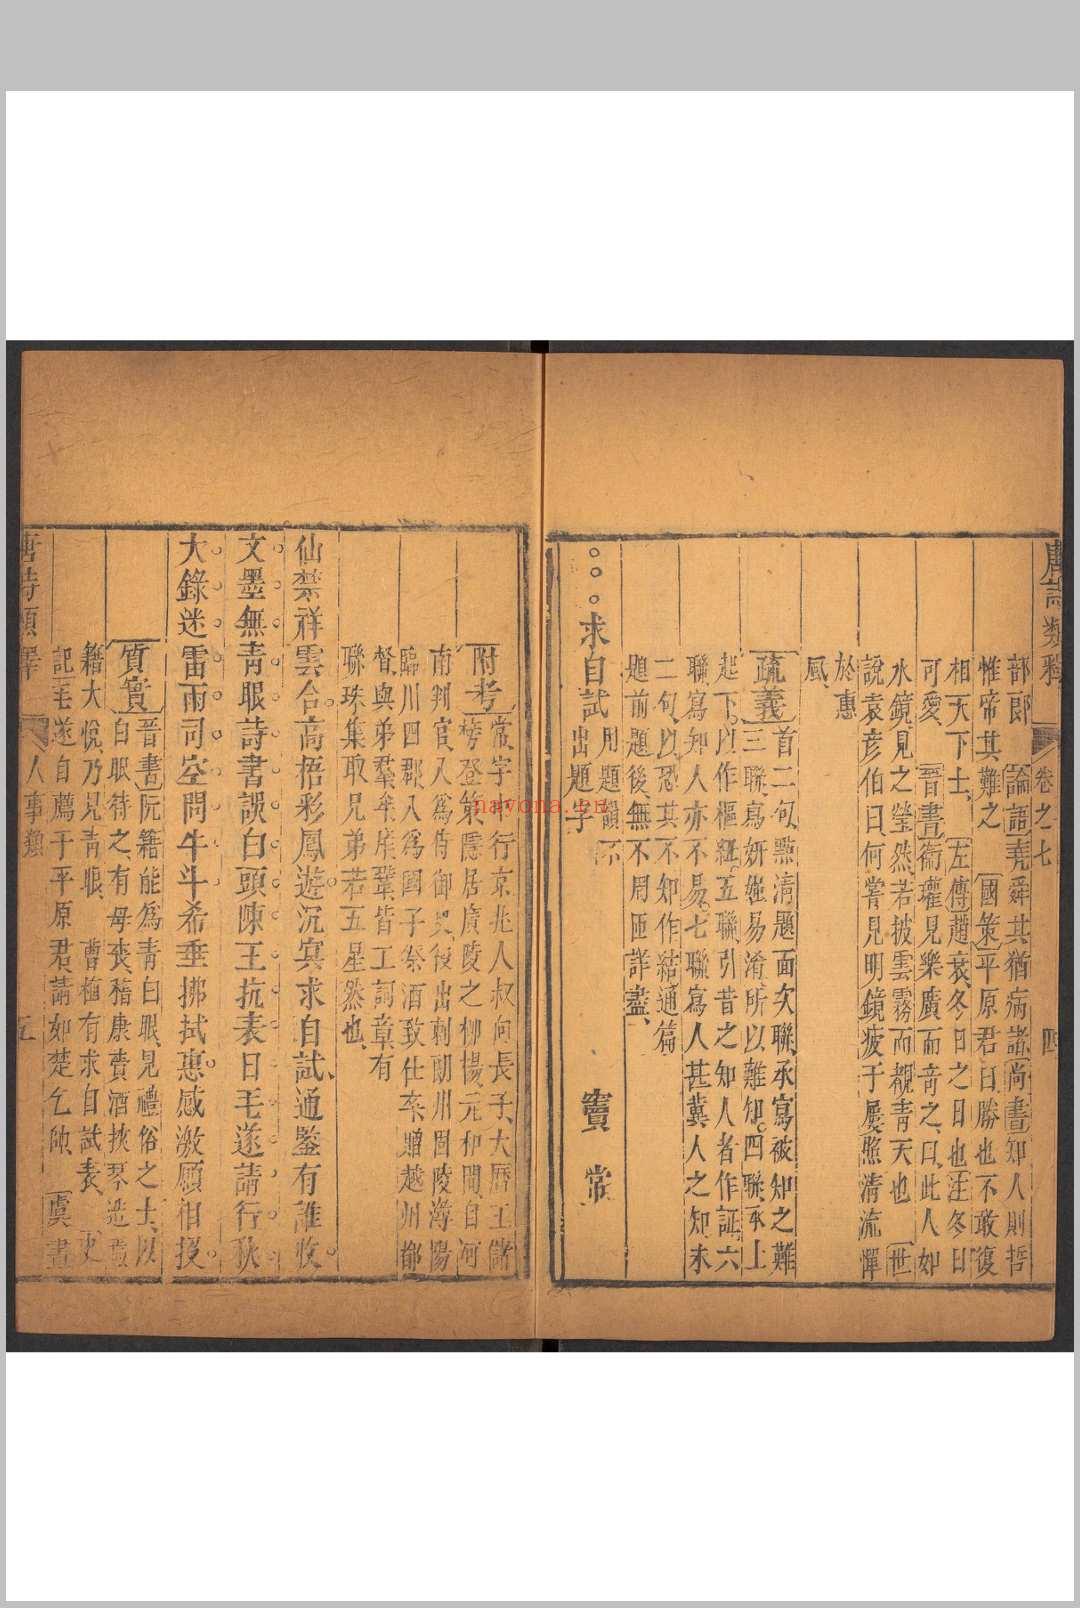 唐詩類釋 卷之七 四
部郎 論語 堯舜其猶病諸 尚書 知人則哲
惟帝其難之 國策 平原君曰勝也不敢復
相天下士 左傳 趙衰冬日之日也 注 冬日
可愛 晉書 衞瓘見樂廣而奇之曰此人如
水鏡見之瑩然若披雲霧而覩青天也 世
說 袁彥伯曰何嘗見明鏡疲于屢照清流憚
於惠
風
疏義 首二句點清題面次聯承寫被知之難
三聯寫妍媸易淆所以難知四聯承上
起下以作樞紐五聯引昔之知人者作証六
聯寫知人亦不易七聯寫人甚冀人之知末
二句以恐其不知作結通篇
題前題後無不周匝詳盡
求自試 用題韻不出題字 竇常
附考 常字中行京兆人叔向長子大曆王儲
榜登策隱居廣陵之柳楊元和間自河
南判官入爲侍御史後出刺朗州固陵潯陽
臨川四郡入爲國子祭酒致仕卒贈越州都
督與弟羣牟庠鞏皆工詞章有
聯珠集取兄弟若五星然也
仙禁祥雲合高梧彩鳳遊沉冥求自試通鑒有誰收
文墨無青眼詩書誤白頭陳王抗表日毛遂請行秋
大錄迷雷雨司空問牛斗希垂拂拭惠感激願相投
質實 晉書 阮籍能爲青白眼見禮俗之士以
白眼待之有母喪嵇康賷酒挾琴造焉
籍大悅乃見青眼 曹植有求自試表 史
記 毛遂自薦于平原君請如楚乞師 虞書
唐詩類釋 人事類 五
nayona.cn